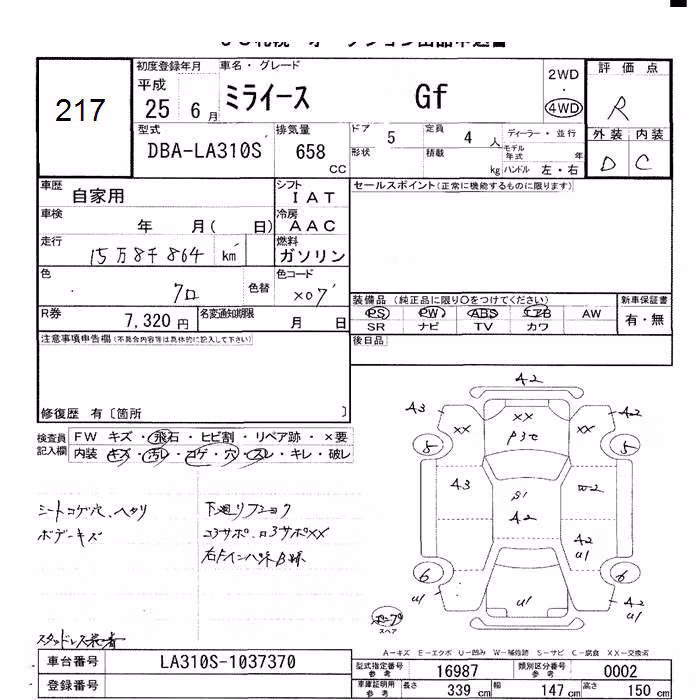 217
初度登録年月
平成
25 6 月
車名・グレード
ミライース Gf
2WD
・
4WD
評価点
R
外装 内装
D C
型式
DBA-LA310S
排気量
658
CC
ドア
5
定員
4 人
形状
積載
kg
ディーラー・並行
モデル年式 年
ハンドル 左・右
車歴
自家用
シフト
IAT
車検
年 月( 日)
冷房
AAC
走行
15万8千864 km
燃料
ガソリン
色
クロ
色替
色コード
X07
R券
7,320 円
名変通知期限
月 日
セールスポイント(正常に機能するものに限ります)
装備品 (純正品に限り○をつけてください)
新車保証書
PS PW ABS エアB AW
有・無
SR ナビ TV カワ
後日品
注意事項申告欄(不具合内容等は具体的に記入して下さい)
修復歴 有〔箇所 〕
検査員
記入欄
FW キズ・飛石・ヒビ割・リペア跡・×要
内装・キズ・汚レ・コゲ・穴・スレ・キレ・破レ
シートコゲ穴、ヘタリ
ボデーキズ
コ3サポ.ロ3サポXX
スタッドレス
A2
A3
A2
XX
XX
XX
5
5
A3
W2
S1
A2
A2
U1
6
6
U1
U1
A2
U1
スペア
A-キズ E-エクボ U-凹み W-補修跡 S-サビ C-腐食 XX-交換済
車台番号
LA310S-1037370
登録番号
型式指定番号
参考
16987
類別区分番号
参考
0002
車庫証明用
参考
長さ
339 cm
幅
147 cm
高さ
150 cm